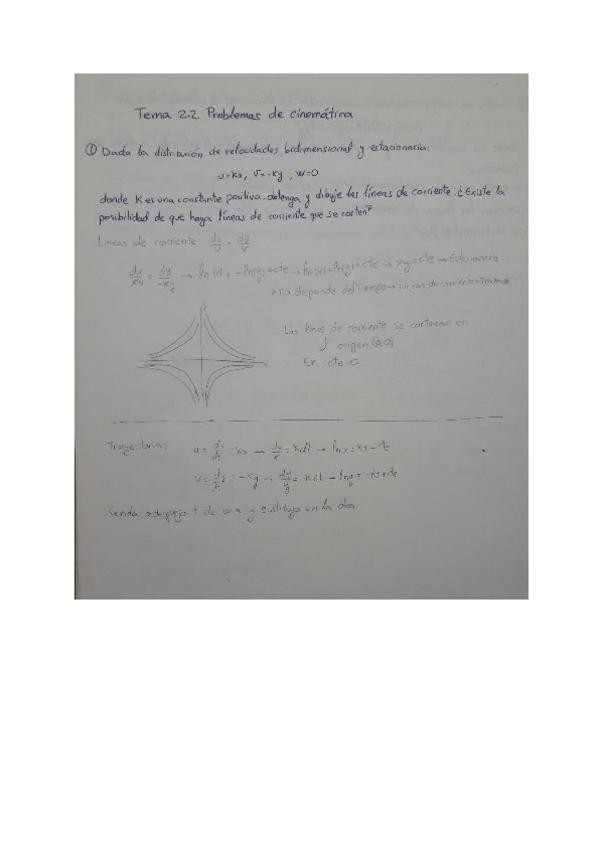 Tema 2.2. Problemas de cinemática
① Dada la distribución de velocidades bidimensional y estacionaria:
u=kx, v=-ky, w=0
donde K es una constante positiva. obtenga y dibuje las líneas de corriente. ¿Existe la
posibilidad de que haya líneas de corriente que se corten?
Líneas de corriente dx/u = dy/v
dx/kx = dy/-ky → ln|x| = -ln|y|+cte → ln|x|+ln|y|=cte → xy=cte → Estacionario
no depende del tiempo → Líneas de corriente
Las líneas de corriente se cortarían en
el origen (0,0)
En cte=0
Trayectoria: u = dx/dt = kx → dx/x = kdt → ln x = kt+cte
v = dy/dt = -ky → dy/y = -kdt → ln y = -kt+cte
Senda → despejo t de una y sustituyo en la otra